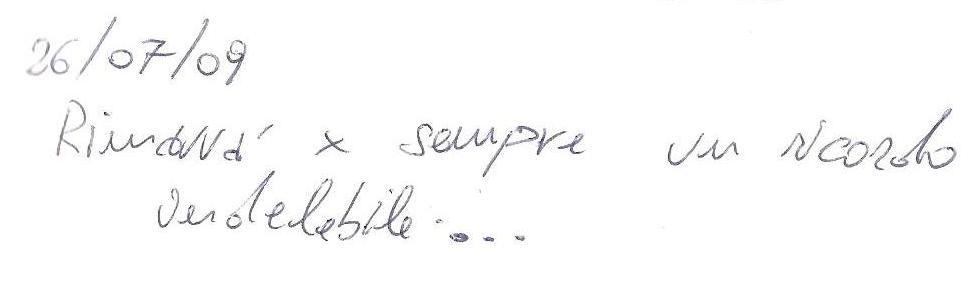 26/07/09
Rimarrá x sempre un ricordo
indelebile....